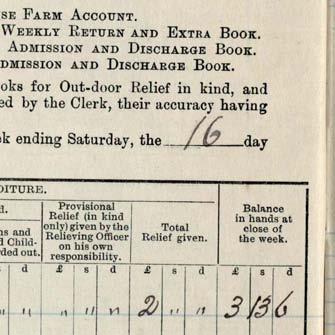 SE FARM ACCOUNT.
WEEKLY RETURN AND EXTRA BOOK.
ADMISSION AND DISCHARGE BOOK.
DMISSION AND DISCHARGE BOOK.
oks for Out-door Relief in kind, and
ed by the Clerk, their accuracy having
ek ending Saturday, the 16 day
DITURE.
d.
ns and
d Child-
rded out.
Provisional
Relief (in kind
only) given by the
Relieving Officer
on his own
responsibility.
Total
Relief given.
Balance
in hands at
close of
the week.
s d £ s d £ s d £ s d
" " " " " 2 " " 3 13 6